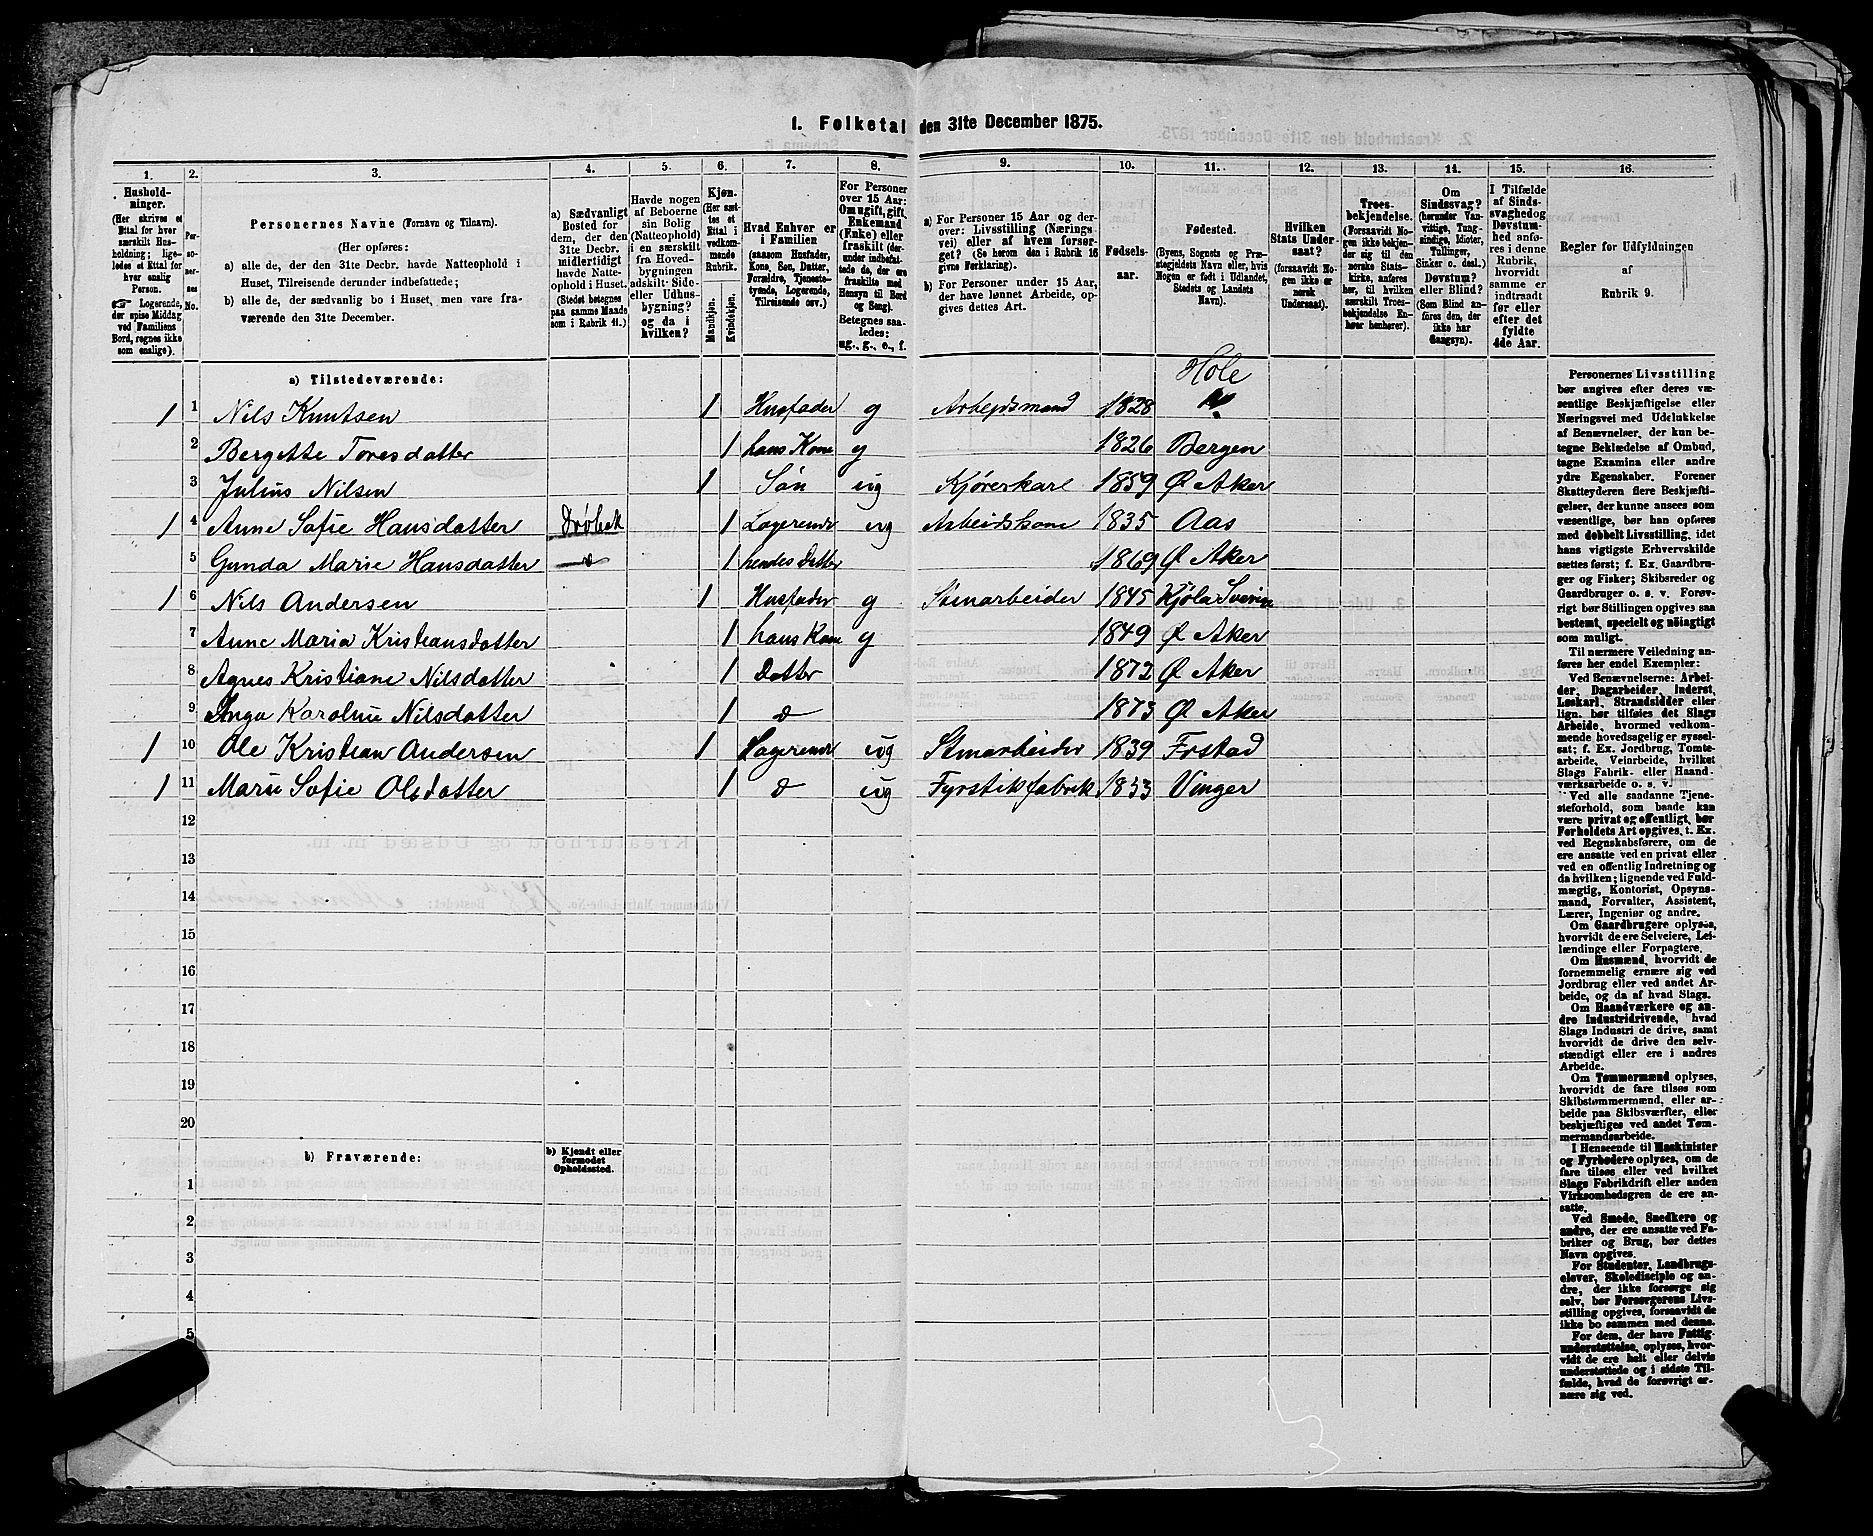 1. Folketal den 31te December 1875.
1. 2. 3. 4. 5. 6. 7. 8. 9. 10. 11. 12. 13. 14. 15. 16.
Hushold-
ninger.
(Her skrives et
Ettal for hver
særskilt Hus-
holdning; lige-
ledes et Ettal for
hver enslig
Person.
Logerende,
der spise Middag
ved Familiens
Bord, regnes ikke
som enslige).
Personernes No.
Personernes Navne (Fornavn og Tilnavn).
(Her opføres:
a) alle de, der den 31te Decbr. havde Natteophold i
Huset, Tilreisende derunder indbefattede;
b) alle de, der sædvanlig bo i Huset, men vare fra-
værende den 31te December.
a) Sædvanligt
Bosted for
dem, der den
31te Decbr.
midlertidigt
havde Natte-
ophold i Huset.
(Stedet betegnes
paa samme Maade
som i Rubrik 11.)
Havde nogen
af Beboerne
sin Bolig
(Natteophold)
i en særskilt
fra Hoved-
bygningen
adskilt Side-
eller Udhus-
bygning?
og da i
hvilken?
Kjøn.
(Her sæt-
tes et
Ettal i
vedkom-
mende
Rubrik.
Mandkjøn.
Kvindekjøn.
Hvad Enhver er
i Familien
(saasom Husfader,
Kone, Søn, Datter,
Forældre, Tjeneste-
tyende, Logerende,
Tilreisende osv.)
For Personer
over 15 Aar:
Om ugift, gift,
Enkemand
(Enke) eller
fraskilt (der-
under indbefat-
tede de, der ere
fraskilte med
Hensyn til Bord
og Seng).
Betegnes saa-
ledes:
ug., g., e., f.
a) For Personer 15 Aar og der-
over: Livsstilling (Nærings-
vei) eller af hvem forsør-
get? (Se herom den i Rubrik 16
givne Forklaring).
b) For Personer under 15 Aar,
der have lønnet Arbeide, op-
gives dettes Art.
Fødsels-
aar.
Fødested.
(Byens, Sognets og Præ-
stegjeldets Navn eller, hvis
Nogen er født i Udlandet,
Stedets og Landets
Navn).
Hvilken
Stats Under-
saat?
(forsaavidt No-
gen ikke er
norsk
Undersaat).
Troes-
bekjendelse.
(Forsaavidt No-
gen ikke bekjen-
der sig til den
norske Stats-
kirke, anføres
her, til hvilken
særskilt Troes-
bekjendelse En-
hver henhører).
Om
Sindssvag?
(herunder Van-
vittige, Tung-
sindige, Idioter,
Tullinger,
Sinker o. desl.)
Døvstum?
eller Blind?
(Som Blind an-
føres den, der
ikke har
Gangsyn).
I Tilfælde
af Sinds-
svaghed og
Døvstum-
hed anfø-
res i denne
Rubrik,
hvorvidt
samme er
indtraadt
før eller
efter det
fyldte
4de Aar.
Regler for Udfyldningen
af
Rubrik 9.
a) Tilstedeværende:
Hole
1 1 Nils Knutsen 1 Husfader g Arbejdsmand 1828
2 Bergette Toresdatter 1 hans Kone g 1826 Bergen
3 Julius Nilsen 1 Søn ug Kjøreskarl 1859 Ø Aker
1 4 Anne Sofie Hansdatter Drøbak 1 Logerende ug Arbeidskone 1835 Aas
5 Gunda Marie Hansdatter d 1 hendes Datter 1869 Ø Aker
1 6 Nils Andersen 1 Husfader g Stmarbeider 1845 Kjøla Sverin
7 Anne Maria Kristiansdatter 1 hans Kone g 1849 Ø Aker
8 Agnes Kristiane Nilsdatter 1 Datter 1872 Ø Aker
9 Inga Karoline Nilsdatter 1 d 1873 Ø Aker
1 10 Ole Kristian Andersen 1 Logerende ug Stmarbeider 1839 Frstad
1 11 Marie Sofie Olsdatter 1 d ug Fyrstikfabrik 1853 Vinger
12
13
14
15
16
17
18
19
20
b) Fraværende:
b) Kjendt eller
formodet
Opholdssted.
1
2
3
4
5
Personernes Livsstilling
bør angives efter deres væ-
sentlige Beskjæftigelse eller
Næringsvei med Udelukkelse
af Benævnelser, der kun be-
tegne Beklædelse af Ombud,
tagne Examina eller andre
ydre Egenskaber. Forener
Skatteyderen flere Beskjæfti-
gelser, der kunne ansees som
væsentlige, bør han opføres
med dobbelt Livsstilling, idet
hans vigtigste Erhvervskilde
sættes først; f. Ex. Gaardbru-
ger og Fisker; Skibsreder og
Gaardbruger o. s. v. Forøv-
rigt bør Stillingen opgives saa
bestemt, specielt og nöiagtigt
som muligt.
Til nærmere Veiledning an-
føres her endel Exempler:
Ved Benævnelserne: Arbei-
der, Dagarbeider, Inderst,
Løskarl, Strandsidder eller
lign. bør tilføies det Slags
Arbeide, hvormed vedkom-
mende hovedsagelig er syssel-
sat; f. Ex. Jordbrug, Tomte-
arbeide, Veiarbeide, hvilket
Slags Fabrik- eller Haand-
værksarbeide o. s. v.
Ved alle saadanne Tjene-
steforhold, som baade kan
være privat og offentligt, bør
Forholdets Art opgives, t. Ex.
ved Regnskabsførere, om de
ere ansatte ved en privat eller
ved en offentlig Indretning og
da hvilken; lignende ved Fuld-
mægtig, Kontorist, Opsyns-
mand, Forvalter, Assistent,
Lærer, Ingeniør og andre.
Om Gaardbrugere oplyses,
hvorvidt de ere Selveiere, Lei-
lændinge eller Forpagtere.
Om Husmænd, hvorvidt de
fornemmelig ernære sig ved
Jordbrug eller ved andet Ar-
beide, og da af hvad Slags.
Om Haandværkere og an-
dre Industridrivende, hvad
Slags Industri de drive, samt
hvorvidt de drive den selv-
stændigt eller ere i andres
Arbeide.
Om Tømmermænd oplyses,
hvorvidt de fare tilsøs som
Skibstømmermænd, eller ar-
beide paa Skibsværfter, eller
beskjæftiges ved andet Tøm-
mermandsarbeide.
I Henseende til Maskinister
og Fyrbødere oplyses, om de
fare tilsøs eller ved hvilket
Slags Fabrikdrift eller anden
Virksomhedsgren de ere an-
satte.
Ved Smede, Snedkere og
andre, der ere ansatte ved Fa-
briker og Brug, bør dettes
Navn opgives.
For Studenter, Landbrugs-
elever, Skoledisciple og an-
dre, der ikke forsørge sig
selv, bør Forsørgerens Livs-
stilling opgives, forsaavidt de
ikke bo sammen med denne.
For dem, der have Fattig-
understøttelse, oplyses, hvor-
vidt de ere helt eller delvis
understøttede og i sidste Til-
fælde, hvad de forøvrigt er-
nære sig ved.